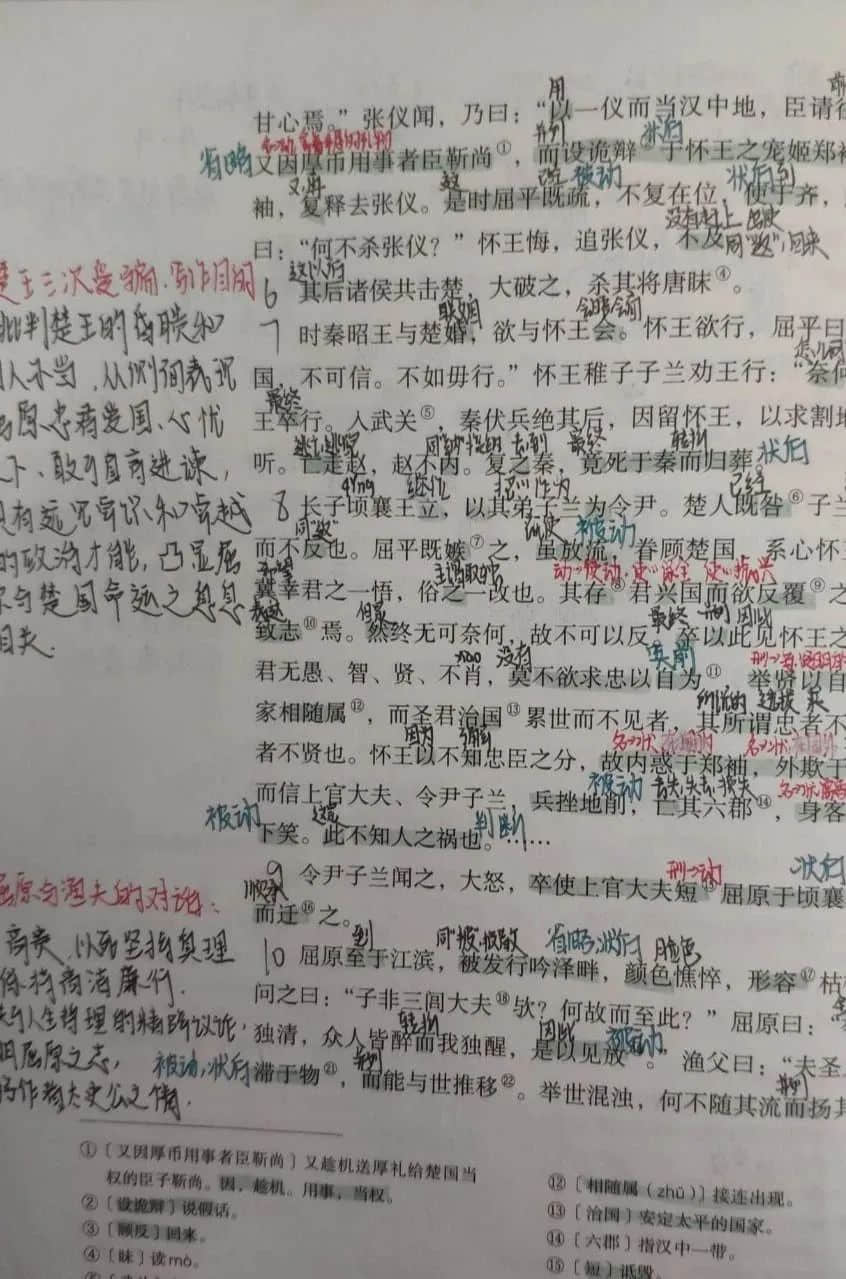 用
甘心焉。”张仪闻，乃曰：“以一仪而当汉中地，臣请往
并列
状后
省略
又因厚币用事者臣靳尚①，而设诡辩②于怀王之宠姬郑袖
又,再
这
疏
被动
状后
到
袖，复释去张仪。是时屈平既疏，不复在位，使于齐，
没有赶上
出使
曰：“何不杀张仪？”怀王悔，追张仪，不及
同“返”,回来
楚王三次受骗.写作目的
这以后
6 其后诸侯共击楚，大破之，杀其将唐眛④。
批判楚王的昏聩和
联姻
会晤会面
7 时秦昭王与楚婚，欲与怀王会。怀王欲行，屈平曰
用人不当,从侧面表现
怎么可
国，不可信。不如毋行。”怀王稚子子兰劝王行：“奈何
屈原忠君爱国、心忧
最终
王卒行。入武关⑤，秦伏兵绝其后，因留怀王，以求割地
天下、敢于直言进谏,
逃亡逃跑
同“纳”接纳
去,到
最终
转折
状后
听。亡走赵，赵不内。复之秦，竟死于秦而归葬。
具有远见卓识和卓越
qǐng
继位
把……作为
已经
8 长子顷襄王立，以其弟子兰为令尹。楚人既咎⑥子兰
的政治才能,凸显屈
同“返”
即使
被动
而不反也。屈平既嫉⑦之，虽放流，眷顾楚国，系心怀王
原与楚国命运之息息
希望
主谓取独
动→使动,使……保全 使……振兴
冀幸君之一悟，俗之一改也。其存⑧君兴国而欲反覆⑨之
相关.
表达
但是
最终
并列
因此
致志⑩焉。然终无可奈何，故不可以反，卒以此见怀王之
没有
宾前
君无愚、智、贤、不肖，莫不欲求忠以自为⑪，举贤以自
所说的
选拔
家相随属⑫，而圣君治国⑬累世而不见者，其所谓忠者不
因为
名→状,在国内
名→状,在国外
者不贤也。怀王以不知忠臣之分，故内惑于郑袖，外欺于
被动
丢失,失去,损失
而信上官大夫、令尹子兰，兵挫地削，亡其六郡⑭，身客
被动
这是
判断
下笑。此不知人之祸也。……
形→动
状后
9 令尹子兰闻之，大怒，卒使上官大夫短⑮屈原于顷襄
屈原与渔父的对话：
顺承
而迁⑯之。
到
同“披”,披散
省略,状后
脸色
10 屈原至于江滨，被发行吟泽畔，颜色憔悴，形容⑰枯
高贵,以死坚持真理
保持高洁廉行.
问之曰：“子非三闾大夫⑱欤？何故而至此？”屈原曰：“
转折
因此
被动
独清，众人皆醉而我独醒，是以见放⑳。”渔父曰：“夫圣人
被动,状后
并列
并列
滞于物㉑，而能与世推移㉒。举世混浊，何不随其流而扬其
明屈原之志,
①〔又因厚币用事者臣靳尚〕又趁机送厚礼给楚国当
权的臣子靳尚。因，趁机。用事，当权。
②〔设诡辩〕说假话。
③〔顾反〕回来。
④〔眛〕读mò。
⑫〔相随属（zhǔ）〕接连出现。
⑬〔治国〕安定太平的国家。
⑭〔六郡〕指汉中一带。
⑮〔短〕诋毁。